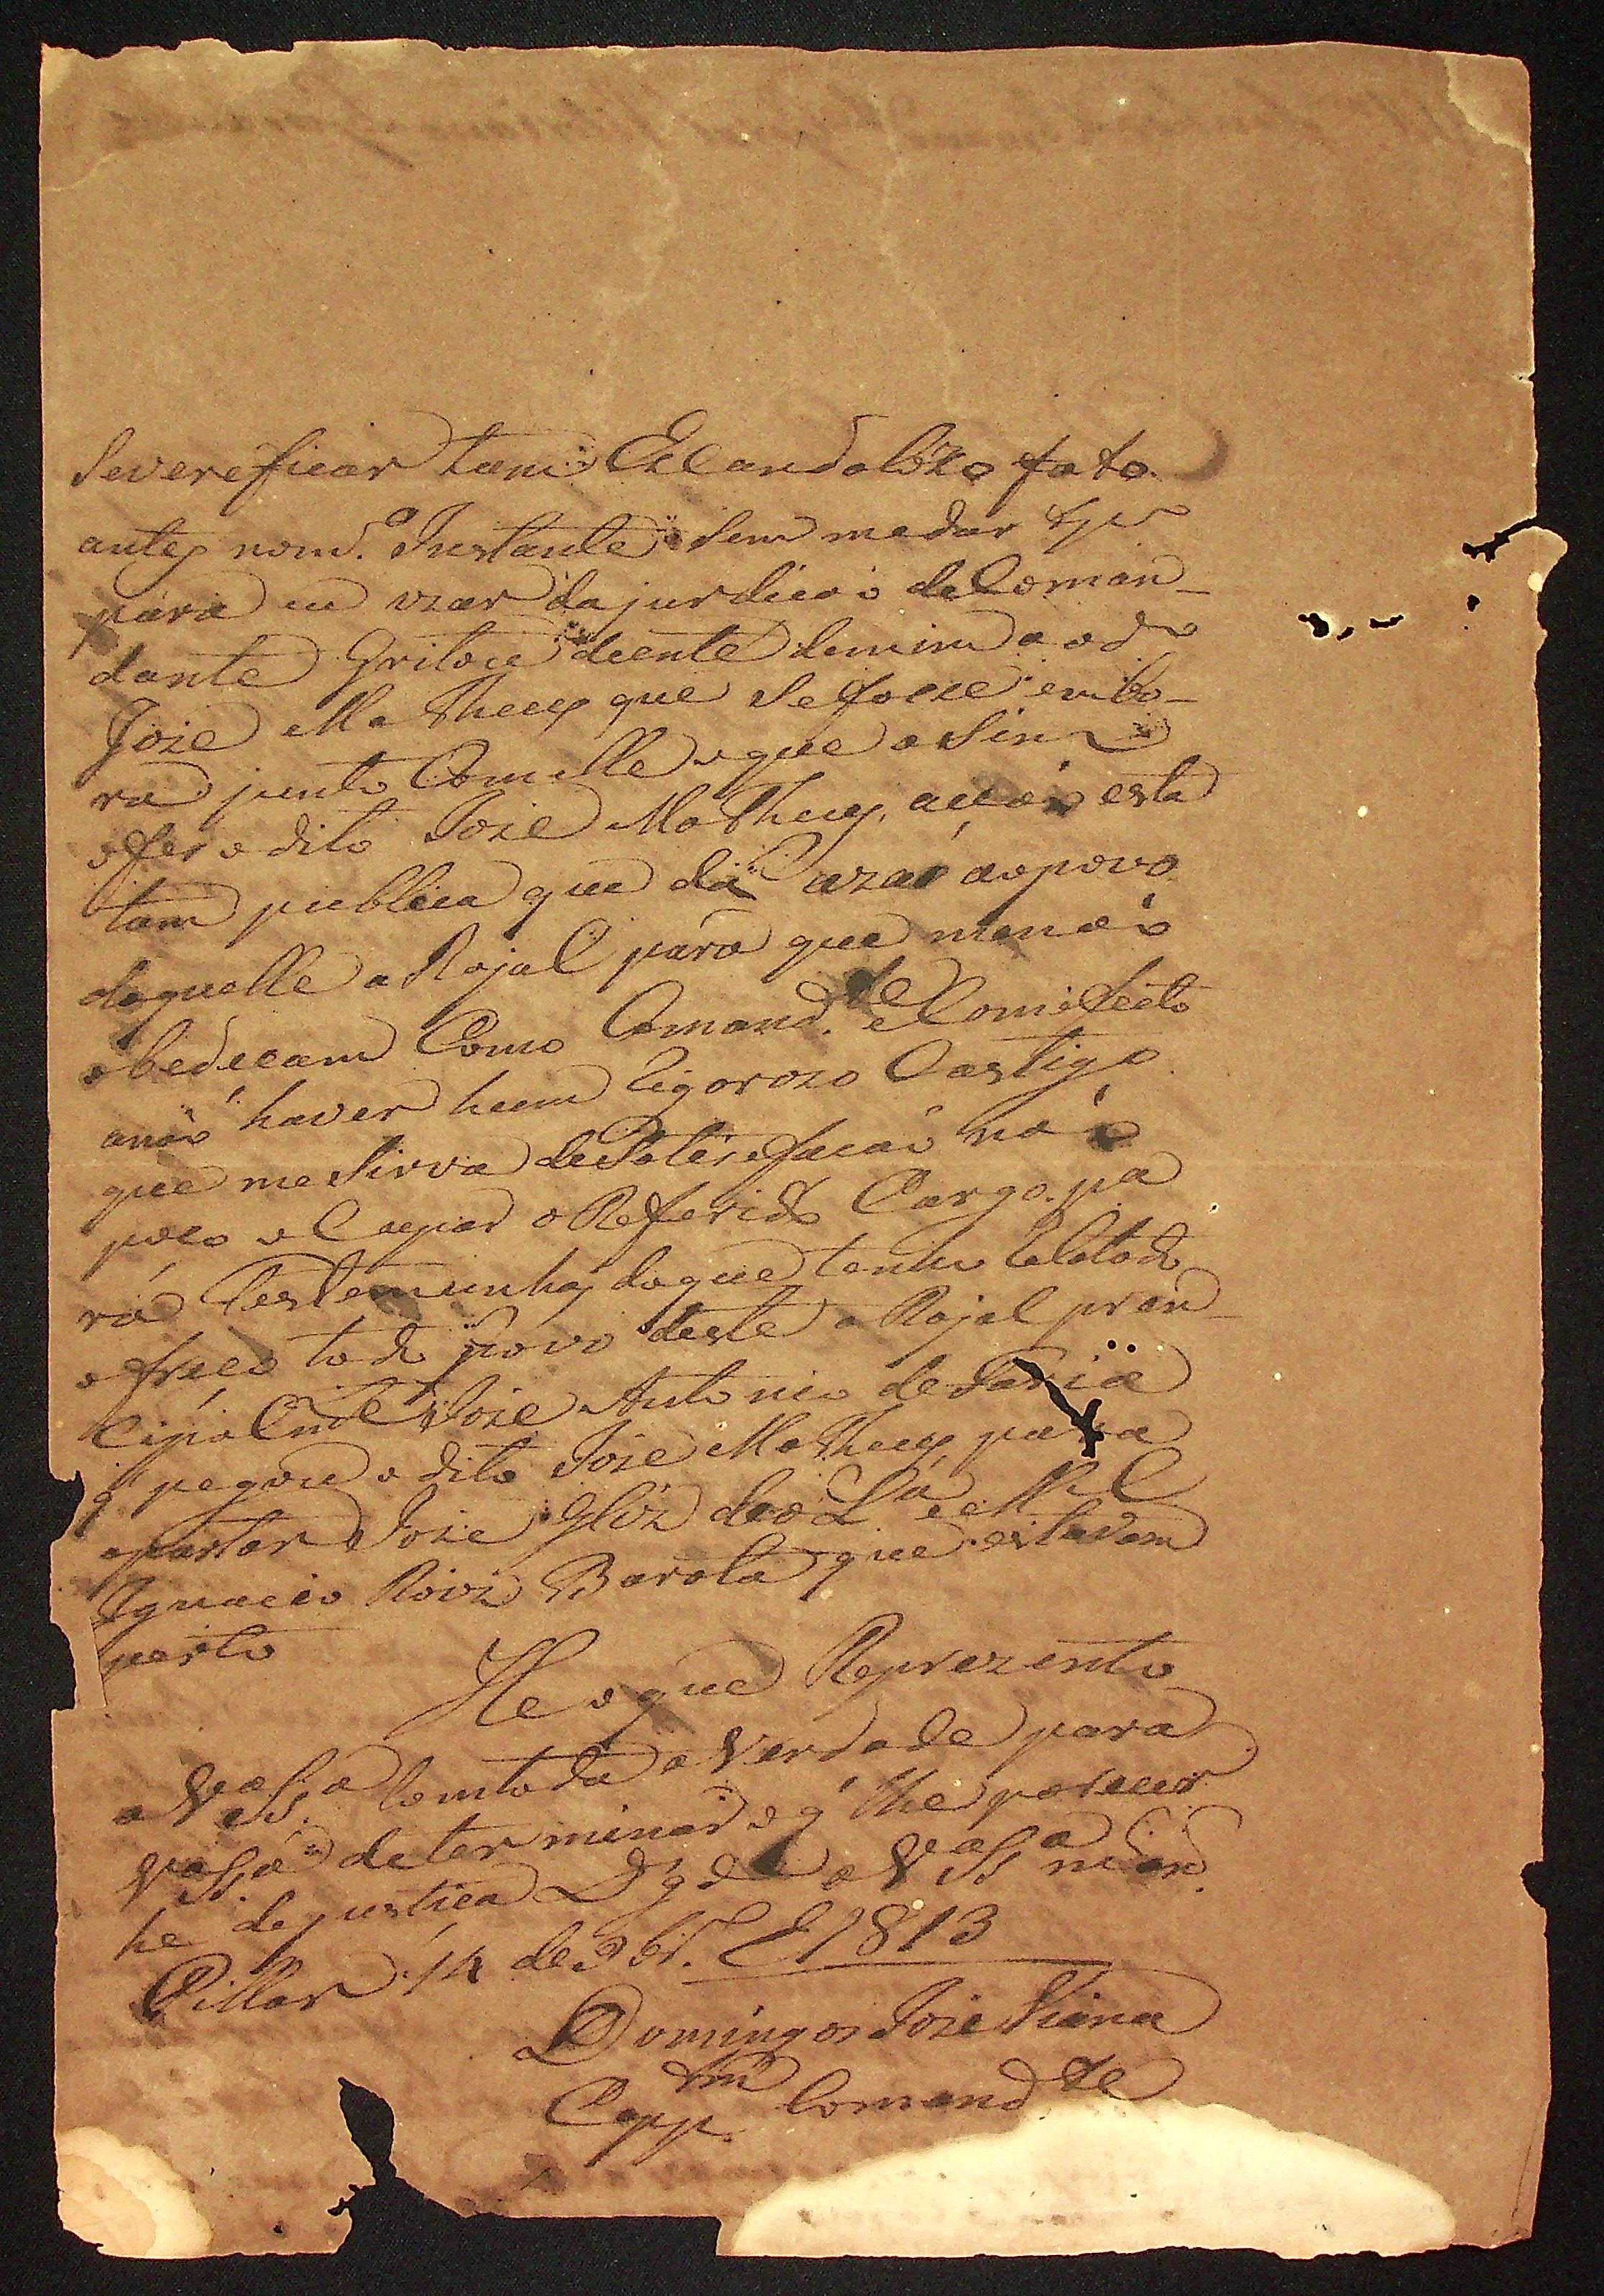 severeficar tam Escandolozo fato
antes nomd.º Instante sem medar tp.º
para eu uzar dajurdicáo deComan-
dante Gritou deente demim aod.º
Joze Matheus que sefosse embo-
ra junto Comelle eque asim
ofes odito Joze Matheus, acáo esta
tam publica que dá Cazáo aopovo
daquelle aRajal para que menáo
obedecam Como Comand.te eComefeito
anáo haver hum Rigorozo Castigo
que mesirva deSatisfacáo náo
poso oCupar oReferido Cargo. pa
ra Testemunhas doque tenho Relatado
ofreco todo povo deste aRajal prin-
cipalm.te Joze Antonio deFaria
q' pegou odito Joze Matheus para
apartar Joze Glz' da L.a e M.el
Ignacio Roiz Barata que estavam
perto
He oque Reprezento
aV.a S.a Comtoda aVerdade para
V.a S.a determinar oq' lhe parecer
he dejustica D.s g.de aV.a S.a m.s an.s
Pillar 14 de 9br.o de 1813
Domingos Joze Viana
Capp.am Comand.te